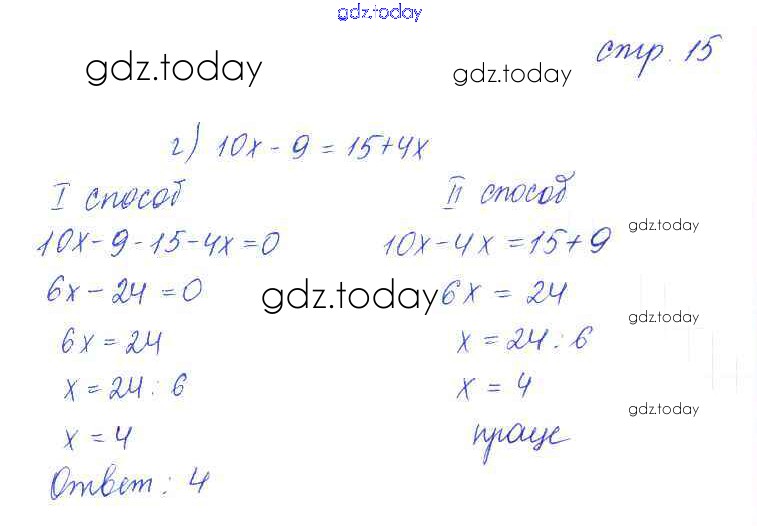 gdz.today
стр. 15
gdz.today
gdz.today
г) 10x - 9 = 15 + 4x
I способ
10x - 9 - 15 - 4x = 0
6x - 24 = 0
6x = 24
x = 24 : 6
x = 4
Ответ: 4
II способ
10x - 4x = 15 + 9
6x = 24
x = 24 : 6
x = 4
проще
gdz.today
gdz.today
gdz.today
gdz.today